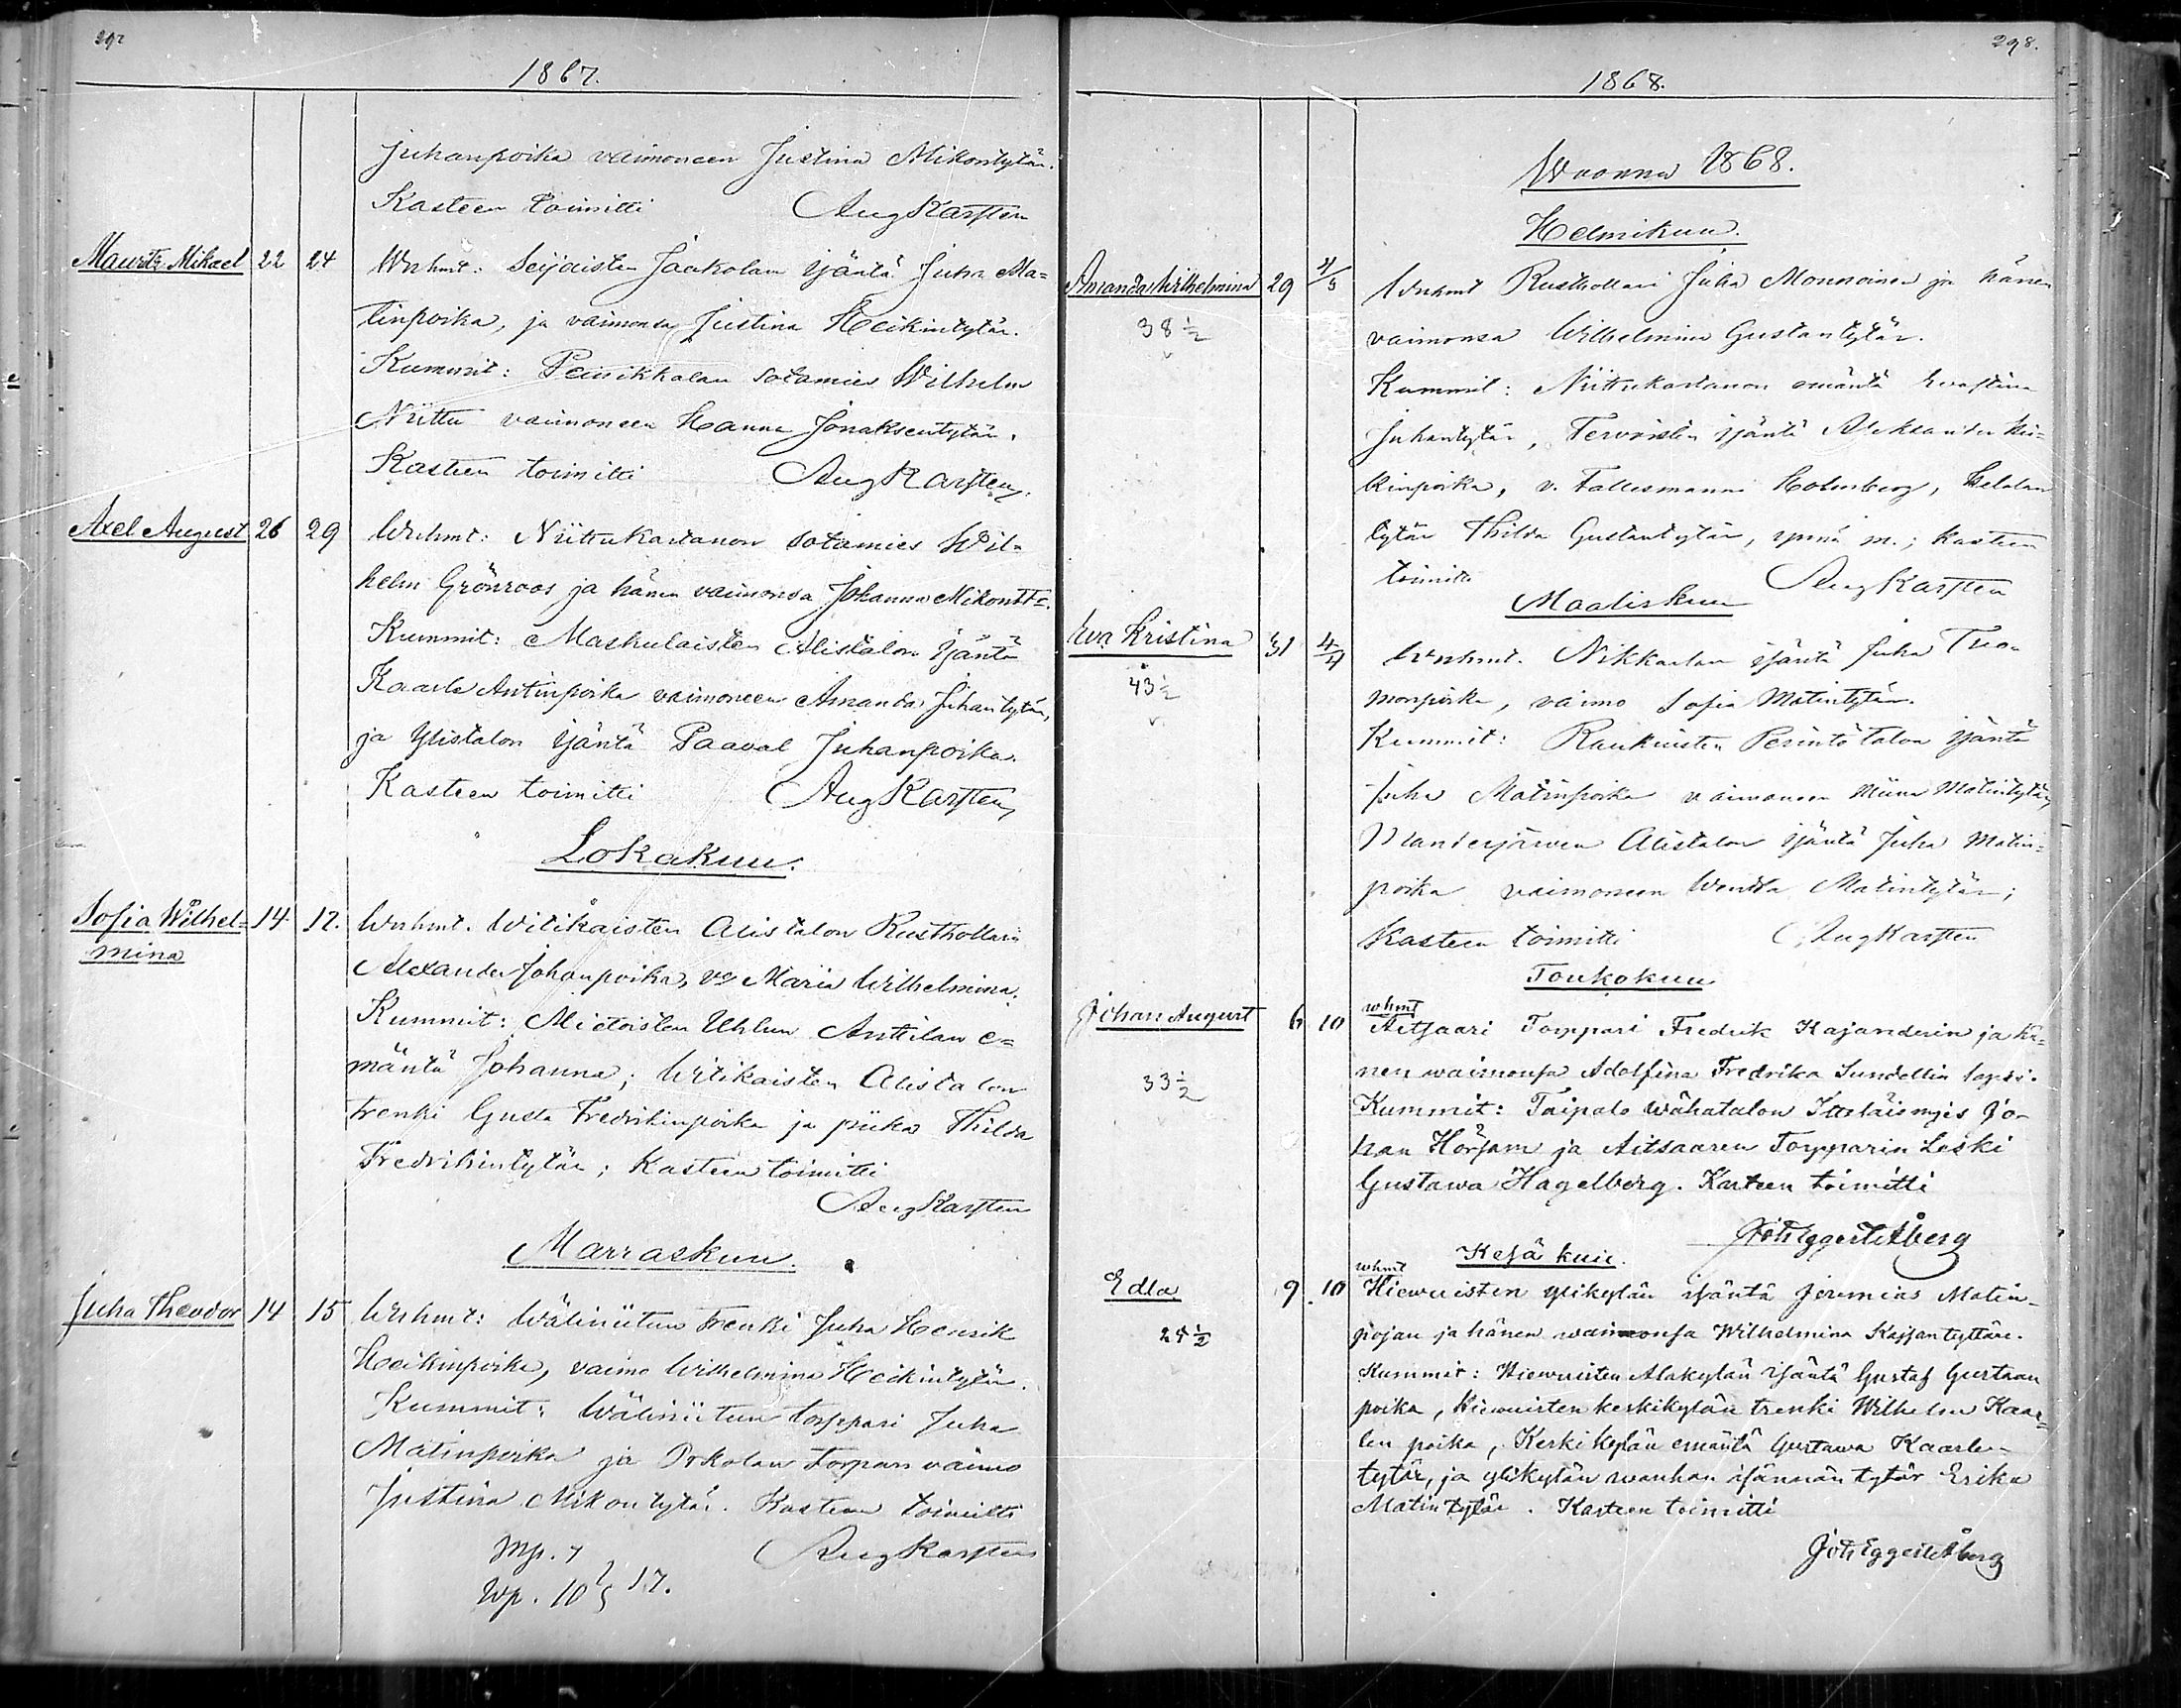 297
1867.
Juhanpoika vaimoneen Justina Mikontytär.
Kasteen toimitti Aug Karsten
Mauritz Mikael 22 24 Wnhmt: Seijaisten Jaakolan isäntä Juha Ma=
tinpoika, ja vaimonsa Justina Heikintytär.
Kummit: sotamies Wilhelm
Niittu vaimoneen Hanna Jonaksentytär.
Kasteen toimitti Aug Karsten
Axel August 26 29 Wnhmt: Niittukartanon sotamies Wil=
helm Grönroos ja hänen vaimonsa Johanna Mikontr.
Kummit: Maskulaisten Alistalon isäntä
Kaarle Antinpoika vaimoneen Amanda Juhantytär,
ja Ylistalon isäntä Paaval Juhanpoika.
Kasteen toimitti Aug Karsten
Lokakuu.
Sofia Wilhel= 14 17. Wnhmt. Witikaisten Alistalon Rusthollari
mina
Alexander Johanpoika, vo Maria Wilhelmina.
Kummit: Mietoisten Uhlun Anttilan e=
mäntä Johanna; Witikaisten Alistalon
trenki Gusta Fredrikinpoika ja piika Thilda
Fredrikintytär; Kasteen toimitti
Aug Karsten
Marraskuu.
Juha Theodor 14 15 Wnhmt: Wäliniitun trenki Juha Henrik
Heikinpoika, vaimo Wilhelmina Heikintytär.
Kummit: Wäliniitun torppari Juha
Matinpoika ja torpari vaimo
Justina Mikontytär. Kasteen toimitti
Mp. 7 Aug Karsten
Wp. 10 } 17.
298.
1868.
Wuonna 1868.
Helmikuu.
Amanda Wilhelmina 29 4/3 Wnhmt Rusthollari Juha Monnoinen ja hänen
38 1/2 vaimonsa Wilhelmina Gustantytär.
Kummit: Niittukartanon emäntä
Juhantytär, Tervoisten isäntä Aleksander Hei=
kinpoika, v. Fallesmanni Holmberg,
tytär Thilda Gustantytär, m.; kasteen
toimitti Aug Karsten
Maaliskuu
Eva Kristina 31 4/4 Wnhmt. Nikkarlan isäntä Juha Tuo=
43 1/2 monpoika, vaimo Sofia Matintytär.
Kummit: Raukuisten Perintötalon isäntä
Juha Matinpoika vaimoneen Miina Matintytär,
Alistalon isäntä Juha Matin=
poika vaimoneen Wendla Matintytär;
Kasteen toimitti Aug Karsten
Toukokuu
Johan August 6 10 whmt
Aitsaari Torppari Fredrik Kajanderin ja hä=
33 1/2 nen waimonsa Adolfina Fredrika Sundellin lapsi.
Kummit: Taipale wähatalon Itselläismyis Jo=
han Hörjom ja Aitsaaren Torpparin Leski
Gustawa Hagelberg. Kasteen toimitti
Joh Eggert Åberg
Kesä kuu.
Edla 9. 10 whmt
Hiewuisten ylikylän isäntä Jeremias Matin=
24 1/2 pojan ja hänen waimonsa Wilhelmina Kaisantyttäre.
Kummit: Hiewuisten Alakylän isäntä Gustaf Gustaan
poika, Hiewuisten keskikylän trenki Wilhelm Kaar=
len poika, Keskikylän emäntä Gustawa Kaarle=
tytär, ja ylikylän wanhan isännän tytär Erika
Matintytär. Kasteen toimitti
Joh Eggert Åberg